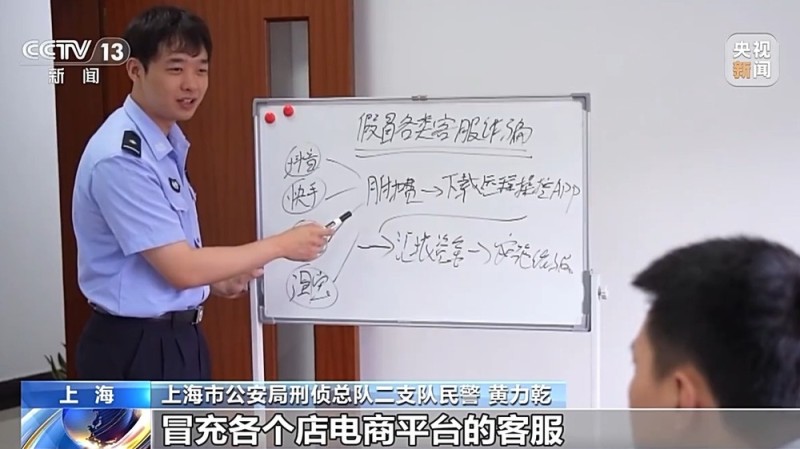 CCTV 13
新闻
央视
新闻
假冒各类客服诈骗
抖音
快手
月付费→下载远程操控APP
淘宝
→汇拢资金→实施诈骗
上海
上海市公安局刑侦总队二支队民警 黄力乾
冒充各个店电商平台的客服